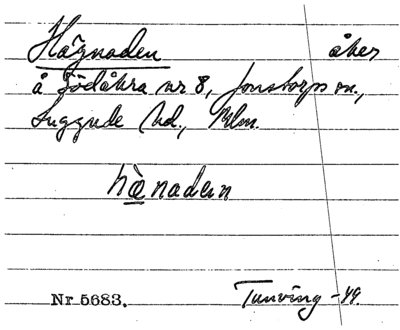 Hägnaden åker
å Södåkra nr 8, Jonstorps sn,
Luggude hd, Mlm.
hànadein
Nr 5683. Tunving -49.